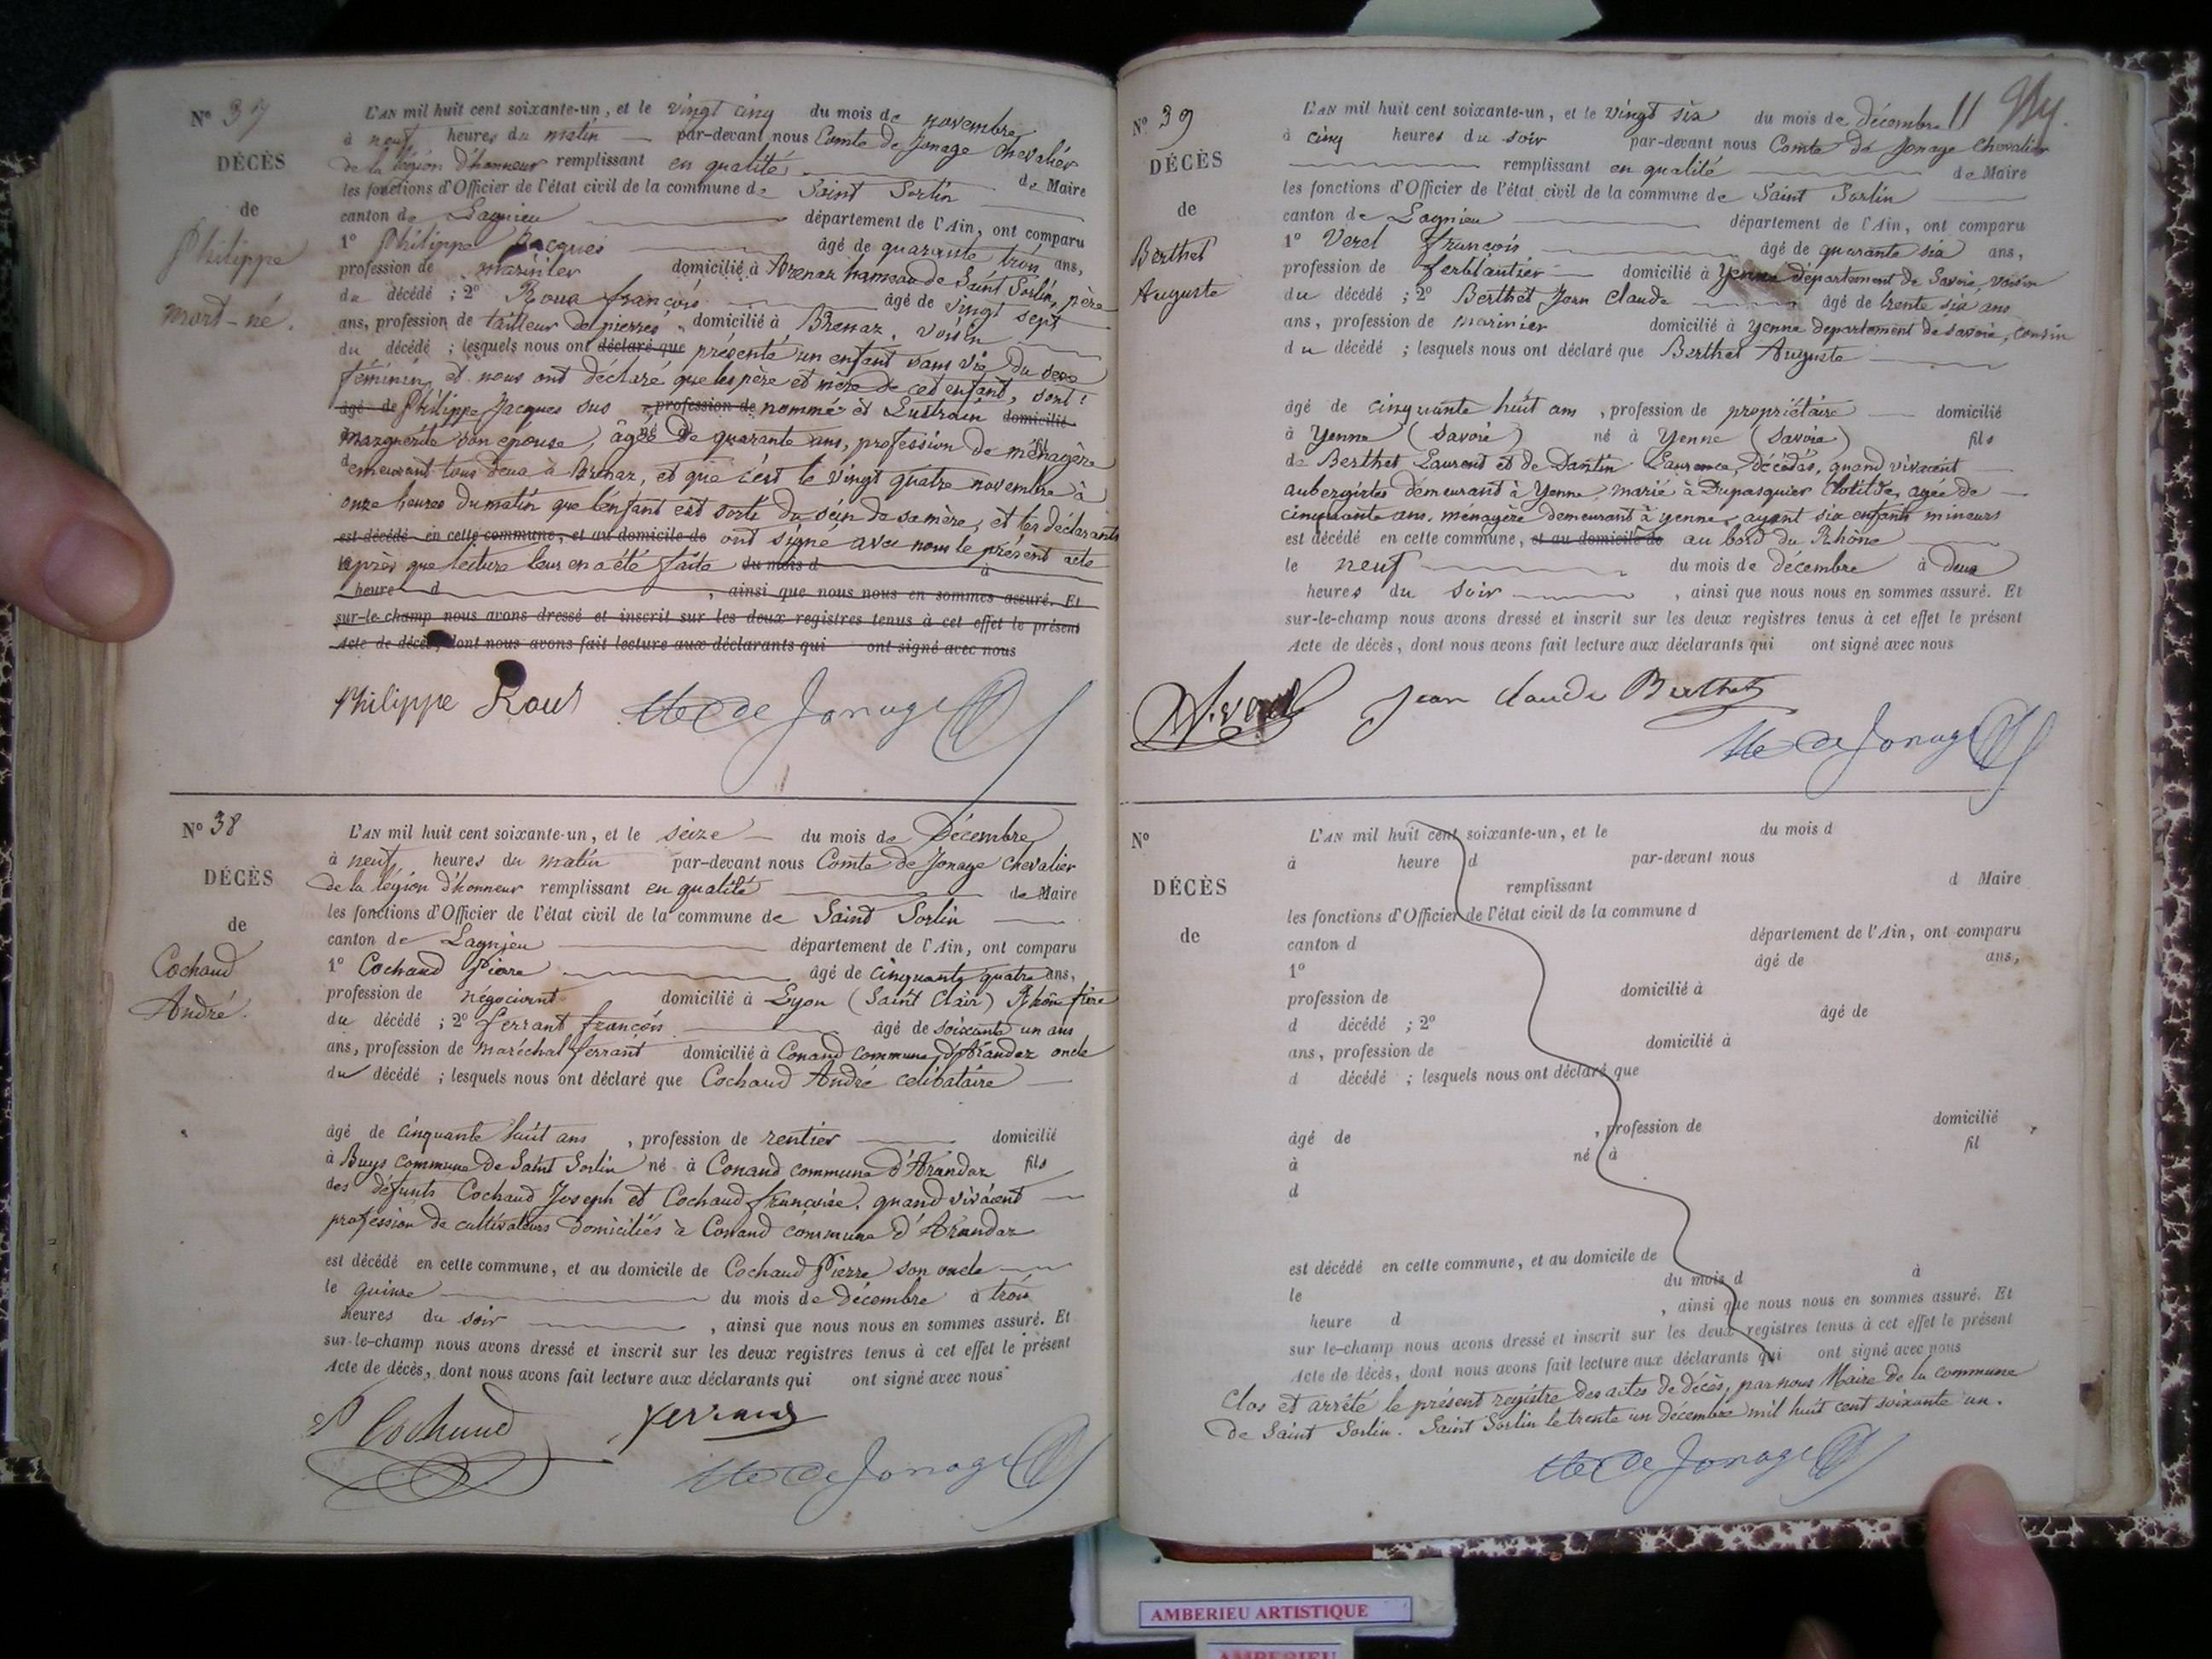 N° 37
DÉCÈS
de
Philippe
mort-né.
L'AN mil huit cent soixante-un, et le vingt cinq du mois de novembre
à neuf heures du matin par-devant nous Comte de Jonage chevalier
de la légion d'honneur remplissant en qualité de Maire
les fonctions d'Officier de l'état civil de la commune de Saint Sorlin
canton de Lagnieu département de l'Ain, ont comparu
1° Philippe Jacques âgé de quarante trois ans,
profession de marinier domicilié à Brenaz hameau de Saint Sorlin, père
du décédé ; 2° Roux françois âgé de vingt sept
ans, profession de tailleur de pierres, domicilié à Brenaz, voisin
du décédé ; lesquels nous ont déclaré que présenté un enfant sans vie du sexe
féminin, et nous ont déclaré que les père et mère de cet enfant, sont :
âgé de Philippe Jacques sus profession de nommé et domicilié
Marguerite son épouse, âgée de quarante ans, profession de ménagère
demeurant tous deux à Brenaz, et que c'est le vingt quatre novembre à
onze heures du matin que l'enfant est sorti du sein de sa mère, et les déclarants
est décédé en cette commune, et au domicile de ont signé avec nous le présent acte
après que lecture leur en a été faite du mois d à
heure d , ainsi que nous nous en sommes assuré. Et
sur-le-champ nous avons dressé et inscrit sur les deux registres tenus à cet effet le présent
Acte de décès, dont nous avons fait lecture aux déclarants qui ont signé avec nous
Philippe Roux Cte de Jonage
N° 38
DÉCÈS
de
Cochaud
André.
L'AN mil huit cent soixante-un, et le seize du mois de Décembre
à neuf heures du matin par-devant nous Comte de Jonage chevalier
de la légion d'honneur remplissant en qualité de Maire
les fonctions d'Officier de l'état civil de la commune de Saint Sorlin
canton de Lagnieu département de l'Ain, ont comparu
1° Cochaud Pierre âgé de cinquante quatre ans,
profession de négociant domicilié à Lyon (Saint Clair) Rhône frère
du décédé ; 2° ferrant françois âgé de soixante un ans
ans, profession de maréchal ferrant domicilié à Conand commune d'Arandaz oncle
du décédé ; lesquels nous ont déclaré que Cochaud André célibataire
âgé de cinquante huit ans , profession de rentier domicilié
à Buys commune de Saint Sorlin né à Conand commune d'Arandaz fils
des défunts Cochaud Joseph et Cochaud françoise, quand vivaient
profession de cultivateurs domiciliés à Conand commune d'Arandaz
est décédé en cette commune, et au domicile de Cochaud Pierre son oncle
le quinze du mois de décembre à trois
heures du soir , ainsi que nous nous en sommes assuré. Et
sur-le-champ nous avons dressé et inscrit sur les deux registres tenus à cet effet le présent
Acte de décès, dont nous avons fait lecture aux déclarants qui ont signé avec nous
P Cochaud ferrand
Cte de Jonage
N° 39
DÉCÈS
de
Berthet
Auguste
L'AN mil huit cent soixante-un, et le vingt six du mois de décembre 11
à cinq heures du soir par-devant nous Comte de Jonage chevalier
remplissant en qualité de Maire
les fonctions d'Officier de l'état civil de la commune de Saint Sorlin
canton de Lagnieu département de l'Ain, ont comparu
1° Veret françois âgé de quarante six ans,
profession de ferblantier domicilié à Yenne département de Savoie, voisin
du décédé ; 2° Berthet Jean Claude âgé de trente six ans
ans, profession de marinier domicilié à Yenne departement de savoie, cousin
du décédé ; lesquels nous ont déclaré que Berthet Auguste
âgé de cinquante huit ans , profession de propriétaire domicilié
à Yenne (Savoie) né à Yenne (Savoie) fils
de Berthet Laurent et de Dantin Laurence, décédés, quand vivaient
aubergistes demeurant à Yenne, marié à Dupasquier Clotilde, agée de
cinquante ans, ménagère demeurant à yenne, ayant six enfants mineurs
est décédé en cette commune, et au domicile de au bord du Rhône
le neuf du mois de décembre à deux
heures du soir , ainsi que nous nous en sommes assuré. Et
sur-le-champ nous avons dressé et inscrit sur les deux registres tenus à cet effet le présent
Acte de décès, dont nous avons fait lecture aux déclarants qui ont signé avec nous
Jean Claude Berthet
Cte de Jonage
N°
DÉCÈS
de
L'AN mil huit cent soixante-un, et le du mois d
à heure d par-devant nous
remplissant d Maire
les fonctions d'Officier de l'état civil de la commune d
canton d département de l'Ain, ont comparu
1° âgé de ans,
profession de domicilié à
d décédé ; 2° âgé de
ans, profession de domicilié à
d décédé ; lesquels nous ont déclaré que
âgé de , profession de domicilié
à né à fil
d
est décédé en cette commune, et au domicile de
le du mois d à
heure d , ainsi que nous nous en sommes assuré. Et
sur-le-champ nous avons dressé et inscrit sur les deux registres tenus à cet effet le présent
Acte de décès, dont nous avons fait lecture aux déclarants qui ont signé avec nous
Clos et arrêté le présent registre des actes de décès, par nous Maire de la commune
de Saint Sorlin. Saint Sorlin le trente un décembre mil huit cent soixante un.
Cte de Jonage
AMBERIEU ARTISTIQUE
AMBERIEU